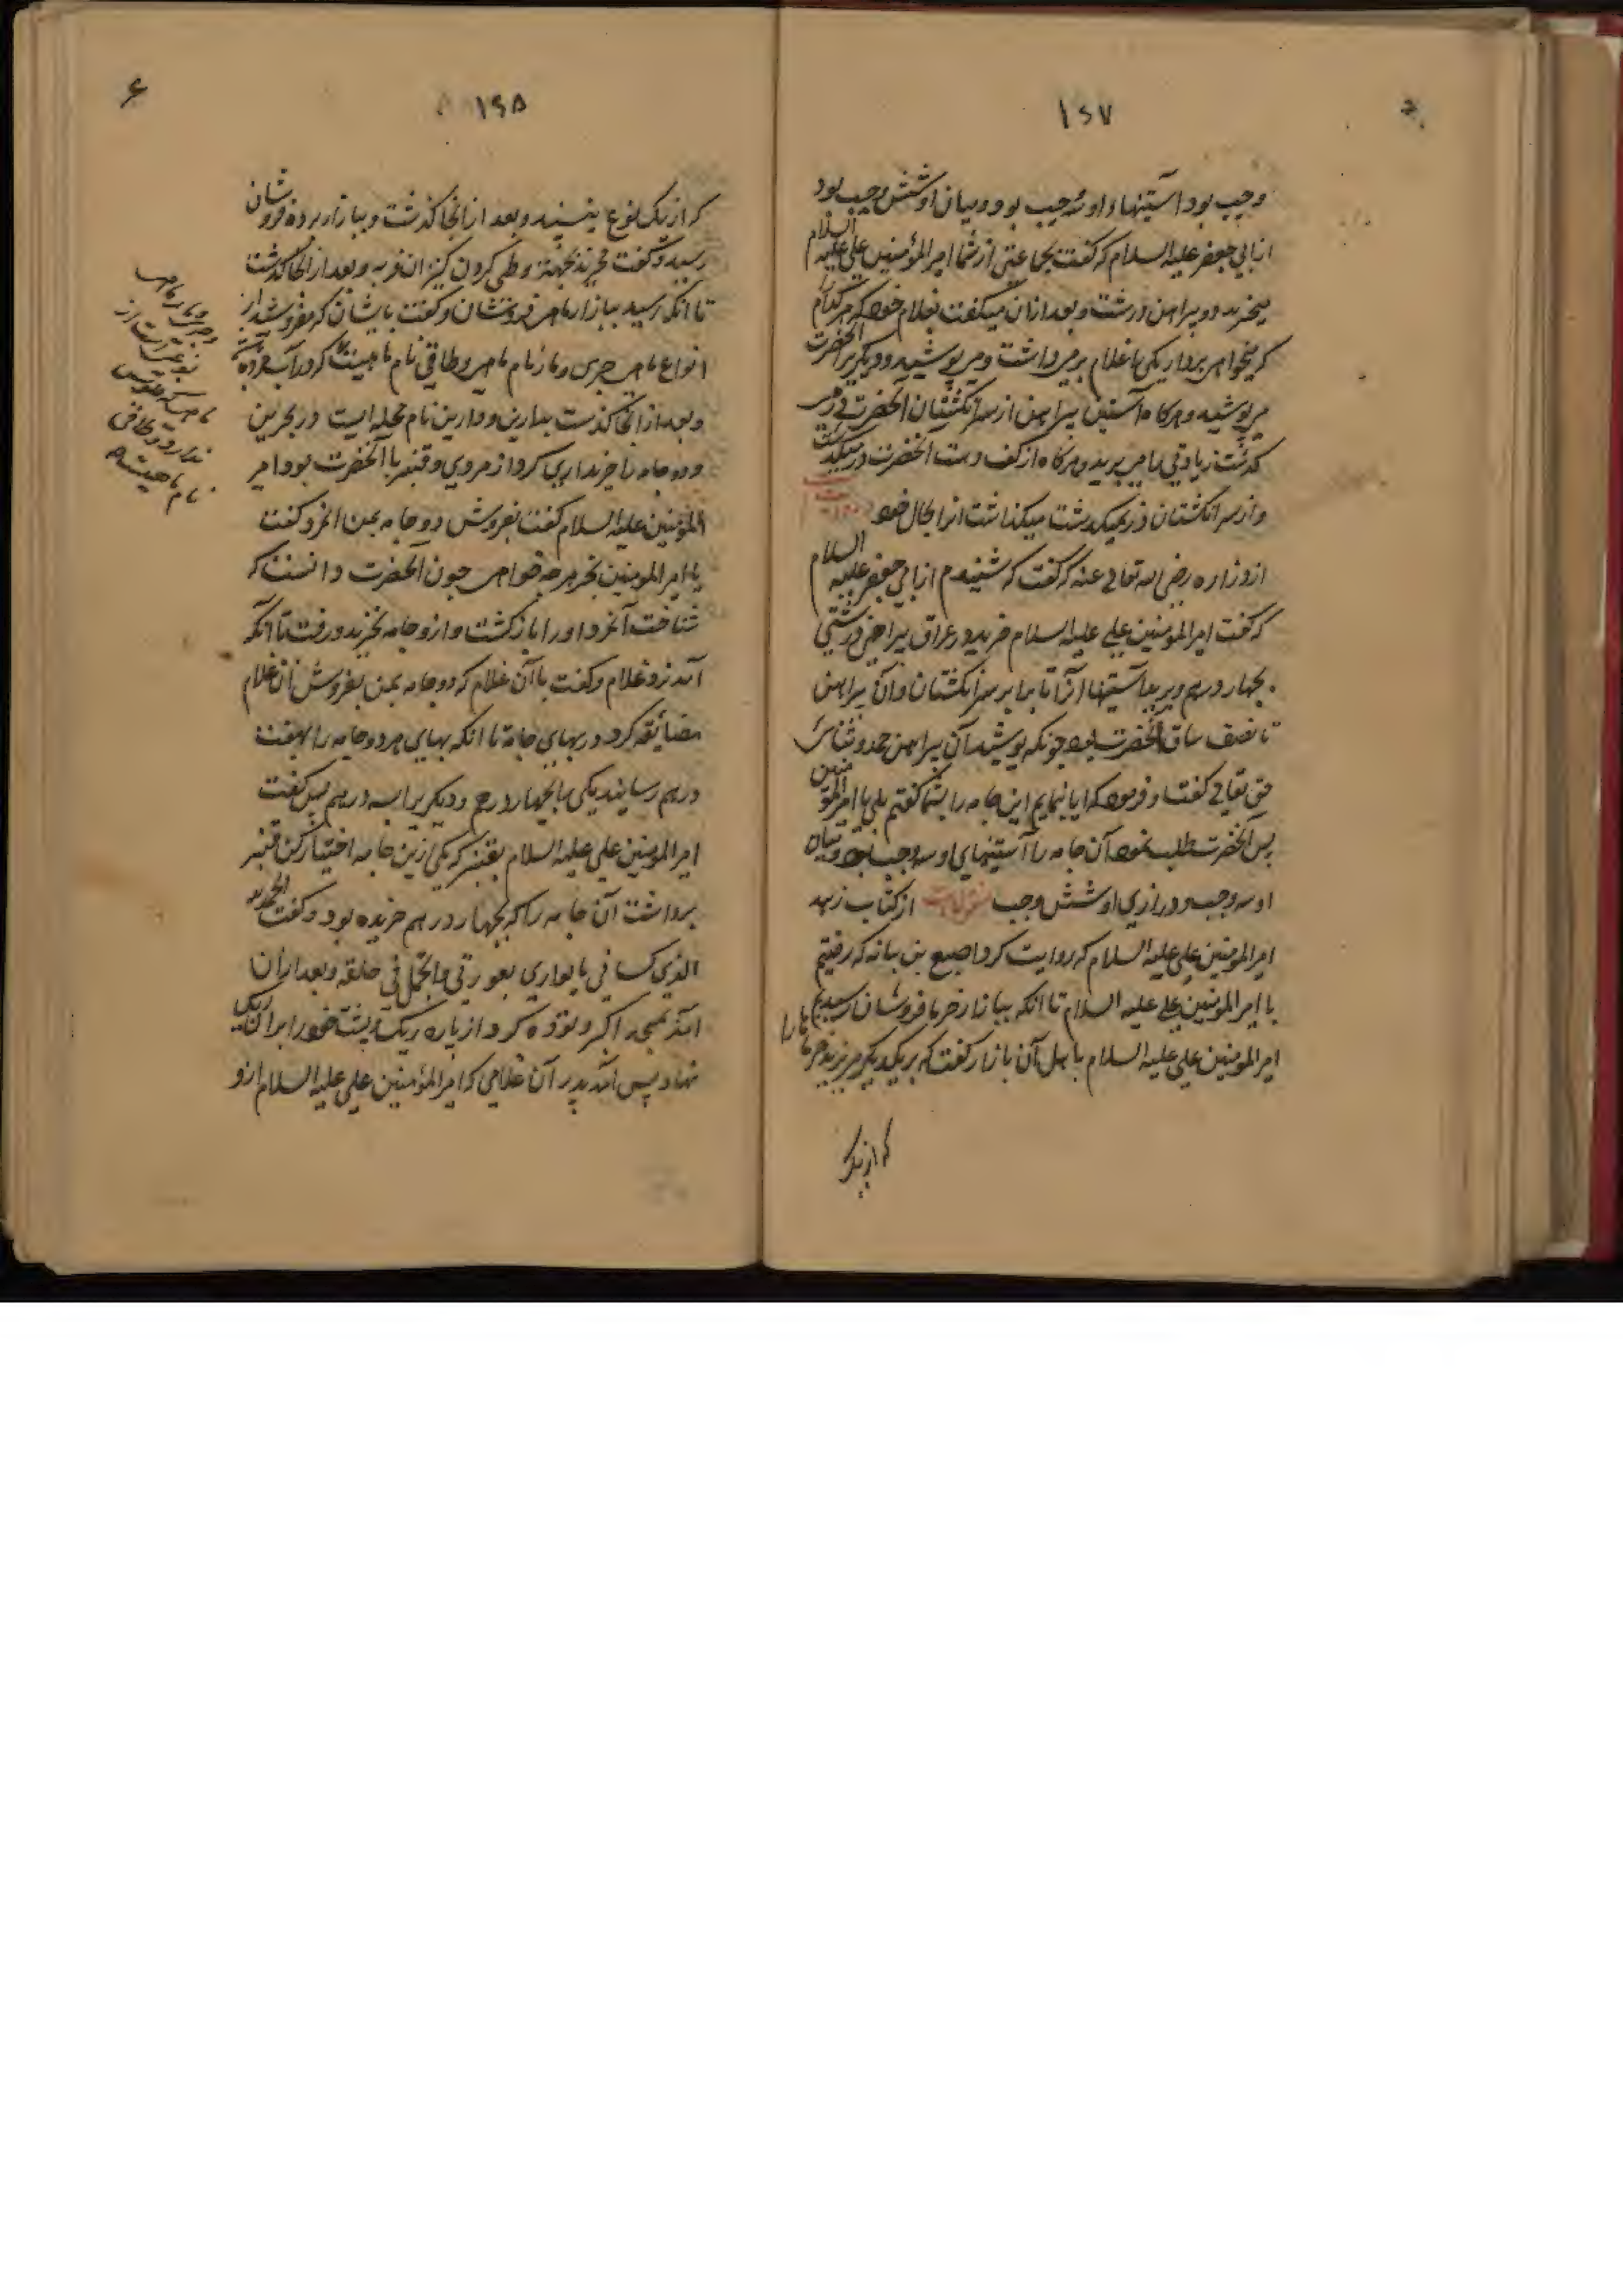 ۱۶۷
وجب بود آستینهاء او سه وجب بود و میان او شش وجب بود
از ابی جعفر علیه السلام که گفت بجماعتی از شما امیر المؤمنین علی علیه السلام
میخرید دو پیراهن درشت و بعد از آن میگفت بغلام خود که هر کدام را
که میخواهی بردار یکی را غلام بر میداشت و می پوشید و دیگر را آنحضرت
می پوشید و هرگاه آستین پیراهن از سر انگشتان آنحضرت در می
گذشت زیادتی را می برید و هرگاه از کف دست آنحضرت در میگذشت
و از سر انگشتان در نمیگذشت میگذاشت آنرا بحال خود
از زراره رضی الله تعالی عنه که گفت که شنیدم از ابی جعفر علیه السلام
که گفت امیر المؤمنین علی علیه السلام خرید در عراق پیراهن درشتی
بچهار درهم و برید آستینها آنرا تا برابر سر انگشتان و آن پیراهن
تا نصف ساق آنحضرت بود چونکه پوشید آن پیراهن حمد و ثنای
حق تعالی گفت و فرمود که آیا بنمایم این جامه را بشما گفتم بلی یا امیر المؤمنین
پس آنحضرت طلب نمود آن جامه را آستینهای او سه وجب بود و میان
او سه وجب و درازی او شش وجب از کتاب زهد
امیر المؤمنین علی علیه السلام که روایت کرد اصبغ بن نباته که رفتیم
با امیر المؤمنین علی علیه السلام تا آنکه ببازار خرما فروشان رسیدیم
امیر المؤمنین علی علیه السلام با اهل آن بازار گفت که بر یکدیگر مریزید خرما را
که از یک
۶
۱۶۸
که از یک نوع نیستند و بعد از آنجا گذشت و ببازار برده فروشان
رسید و گفت مخرید بجهة وطی کردن کنیزان فربه و بعد از آنجا گذشت
تا آنکه رسید ببازار ماهی فروشان و گفت بایشان که مفروشید از
انواع ماهی جری و مار ماهی و طاقی
و بعد از آنجا گذشت بدارین و دارین نام محله ایست در بحرین
و دو جامه را خریداری کرد از مردی و قنبر با آنحضرت بود امیر
المؤمنین علیه السلام گفت بفروش دو جامه بمن آنمرد گفت
یا امیر المؤمنین بخر هر چه خواهی چون آنحضرت دانست که
شناخت آنمرد او را بازگشت و از او جامه نخرید و رفت تا آنکه
آمد نزد غلام و گفت با آن غلام که دو جامه بمن بفروش آن غلام
مضایقه کرد در بهای جامه تا آنکه بهای هر دو جامه را بهفت
درهم رسانید یکی را بچهار درهم و دیگر را بسه درهم پس گفت
امیر المؤمنین علی علیه السلام بقنبر که یکی ازین جامه اختیار کن قنبر
برداشت آن جامه را که بچهار درهم خریده بود و گفت الحمد لله
الذی کسانی ما یواری بعورتی و اتجمل فی خلقه و بعد از آن
آمد بمسجد اکبر و توده کرد از پاره ریک
نهاد پس آمد پدر آن غلامی که امیر المؤمنین علی علیه السلام ازو